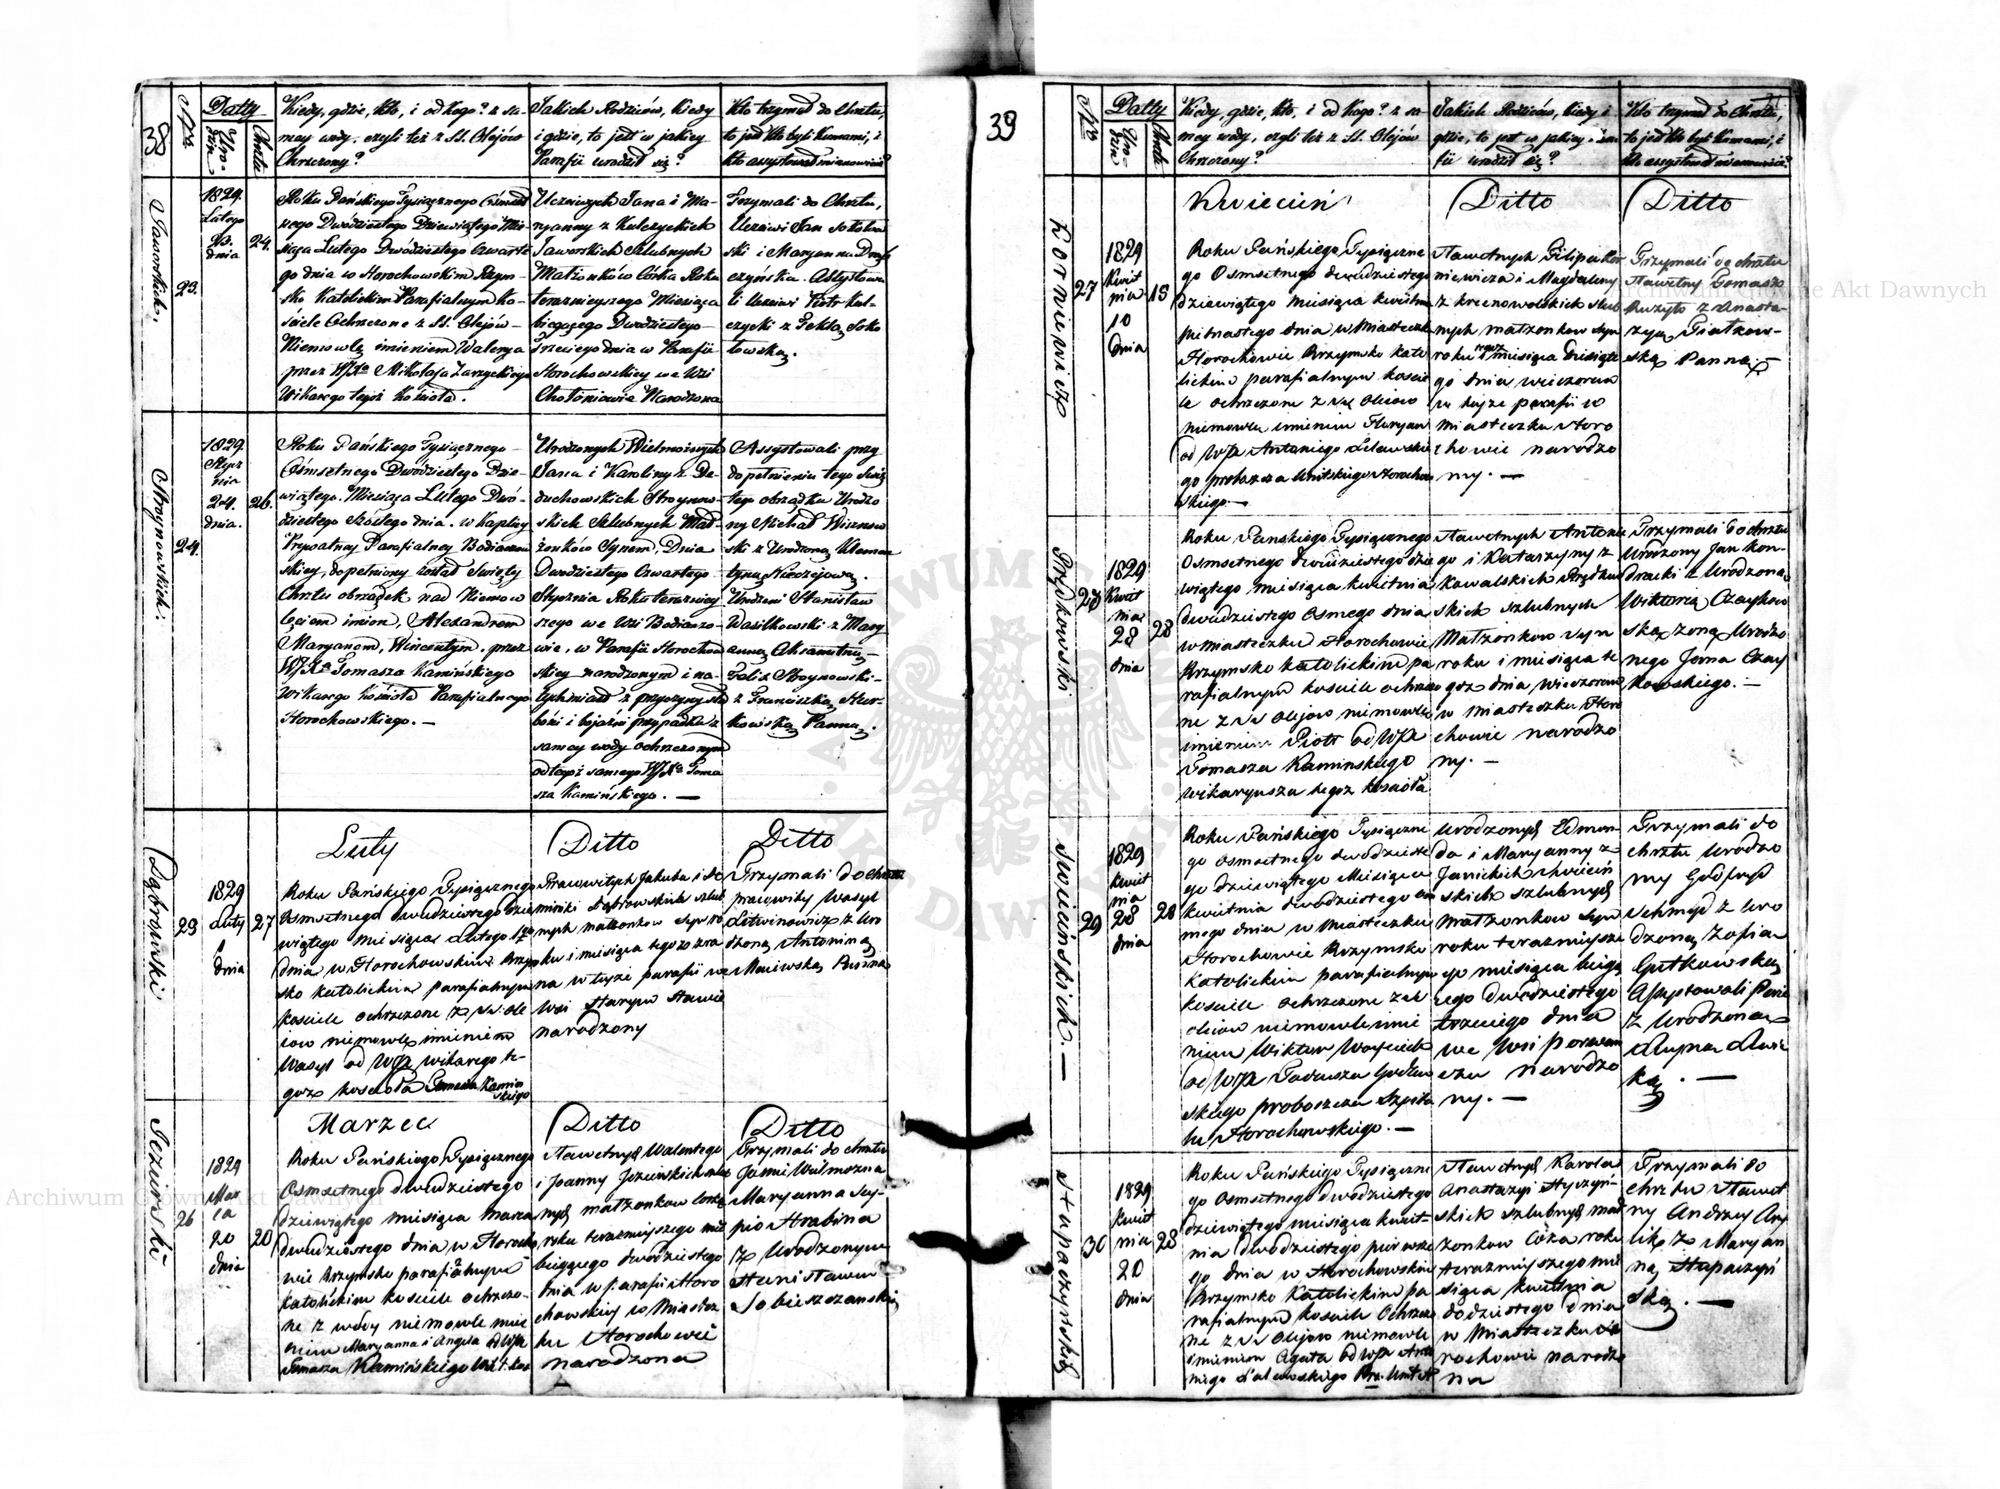 38
Datty
Kiedy, gdzie, kto, i od kogo? z sa-
mey wody, czyli też z SS. Olejów
Chrzczony?
Jakich Rodziców, kiedy
i gdzie, to jest w jakiey
Parafii urodził się?
Kto trzymał do Chrztu,
to jest kto byli Kumami, i
kto assystował mianowicie?
Jaworskich.
23.
1829.
Lutego
23.
dnia
24.
Roku Pańskiego Tysiącznego Ośmset-
nego Dwódziestego Dziewiątego Mie-
siąca Lutego Dwódziestego Czwarte-
go dnia w Horochowskim Rzym-
sko Katolickim Parafialnym Ko-
ściele Ochrzczone z SS. Olejów
Niemowlę imieniem Walerya
przez WJXa Mikołaja Zarzyckiego
Wikarego tegoż Kościoła.
Uczciwych Jana i Ma-
ryanny z Kulczyckich
Jaworskich Szlubnych
Małżonków Córka Roku
teraznieyszego Miesiąca
biegącego Dwodziestego
Trzeciego dnia w Parafii
Horochowskiey we Wsi
Chołoniowie Narodzona
Trzymali do Chrztu,
Uczciwi Jan Sokołow
ski i Maryanna
czyńska. Assystowa
li Uczciwi Piotr Kul-
czycki z Teklą Soko
łowską.
Stroynowskich.
24.
1829.
Stycz
nia
24.
dnia.
26.
Roku Pańskiego Tysiącznego
Ośmsetnego Dwódziestego Dzie-
wiątego. Miesiąca Lutego Dwó-
dziestego Szóstego dnia. w Kaplicy
Prywatney Parafialney Bodiaczow
skiey, dopełniony został Święty
Chrztu obrządek nad Niemow
lęciem imion, Alexandrem
Maryanem, Wincentym. przez
WJXa Tomasza Kamińskiego
Wikarego Kościoła Parafialnego
Horochowskiego. —
Urodzonych Wielmożnych
Jana i Karoliny z De-
duchowskich Stroynow-
skich Szlubnych Mał-
żonków Synem, Dnia
Dwodziestego Czwartego
Stycznia Roku terazniey
szego we Wsi Bodiaczo-
wie, w Parafii Horochow
skiey narodzonym i na-
tychmiast z przyczyny sła
bości i bojaźni przypadku z
samey wody ochrzczonym
od tegoż samego WJXa Toma
sza Kamińskiego. —
Assystowali przy
dopełnieniu tego Świę
tego obrządku Urodzo
ny Michał Wiszniow
ski z Urodzoną Klemen
tyną Nieczajową.
Urodzeni Stanisław
Wasilkowski z Mary
anną Aksamitną
Felix Stroynowski
z Franciszką
kowską Panną.
Dąbrowski
1829
Luty
dnia
27
Luty
Roku Pańskiego Tysiącznego
Osmsetnego dwudziestego dzie
wiątego miesiąca Lutego
dnia w Horochowskim Rzym
sko katolickim parafialnym
kosciele ochrzczone z SS. ole
iow niemowle imieniem
Wasyl od WJX wikarego te-
goz koscioła Tomasza Kamin
skiego
Ditto
Pracowitych Jakuba i
Dąbrowskich szlub
nych małżonkow Syn ro
ku i miesiąca tegoz
na w teyże parafii we
Wsi Starym Stawie
narodzony
Ditto
Trzymali do chrztu
pracowity Wasyl
Litwinowicz z Uro
dzoną Antoniną
Maiewską Panną
Jezierski
26
1829
Mar
ca
20
dnia
20
Marzec
Roku Pańskiego Tysiącznego
Osmsetnego dwudziestego
dziewiątego miesiąca marca
dwudziestego dnia w Horocho
wie Rzymsko parafialnym
katolickim kosciele ochrzczo-
ne z wody niemowle imie
niem Maryanna i Angela od WJX
Tomasza Kamińskiego
Ditto
Sławetnych Walentego
i Joanny Jezierskich szlub
nych małżonkow Corka
roku terazniejszego mie
biegącego dwudziestego
dnia w parafii Horo
chowskiey w Miastecz
ku Horochowie
narodzona
Ditto
Trzymali do chrztu
Jaśnie Wielmożna
Maryanna Sey-
pio Hrabina
z Urodzonym
Stanisławem
Sobieszczanskim
39
Datty
Kiedy, gdzie, kto, i od Kogo? z sa-
mey wody, czyli też z SS. Olejów
Chrzczony?
Jakich Rodziców, kiedy i
gdzie, to jest w jakiey Para-
fii urodził się?
Kto trzymał do Chrztu,
to jest kto był Kumami, i
kto assystował mianowicie?
Zorniewicz
27
1829
Kwiet
nia
10
dnia
15
Kwiecień
Roku Pańskiego Tysiączne
go Osmsetnego dwudziestego
dziewiątego miesiąca kwietnia
pietnastego dnia w Miasteczku
Horochowie Rzymsko kato
lickim parafialnym koscie
le ochrzczone z SS Oleiow
niemowle imieniem Floryan
od WJX Antoniego Zalewskie
go proboszcza Unitskiego Horochow
skiego —
Ditto
Sławetnych Filipa
niewicza i Magdaleny
z Krzenowolskich szlub
nych małżonkow Syn
roku teraz miesiąca dziesiąte
go dnia wieczorem
w teyze parafii w
Miasteczku Horo
chowie narodzo
ny. —
Ditto
Trzymali do chrztu
Sławetny Tomasz
z Anasta-
zyą Piatkow-
ską Panną
Przedkowski
28
1829
Kwiet
nia
28
dnia
28
Roku Pańskiego Tysiącznego
Osmsetnego dwudziestego dzie
wiątego miesiąca kwietnia
dwudziestego Osmego dnia
w miasteczku Horochowie
Rzymsko katolickim pa
rafialnym kosciele ochrzczo
ne z SS oleiow niemowle
imieniem Piotr od WJX
Tomasza Kaminskiego
wikaryusza tegoz koscioła
Sławetnych Antonie
go i Katarzyny z
Kowalskich
skich szlubnych
Małżonkow syn
roku i miesiąca te
goz dnia wieczorem
w miasteczku Horo
chowie narodzo
ny. —
Trzymali do chrztu
Urodzony Jan Kon-
dracki z Urodzoną
Wiktorią Czaykow
ską żoną Urodzo
nego Jana Czay
kowskiego. —
Swiecińskich. —
29
1829
Kwiet
nia
28
dnia
28
Roku Pańskiego Tysiączne
go osmsetnego dwudzieste
go dziewiątego Miesiąca
kwietnia dwodziestego os
mego dnia w Miasteczku
Horochowie Rzymsko
Katolickim parafialnym
kosciele ochrzczone z SS
oleiow niemowle imie
niem Wiktor Woyciech
od WJX Tadeusza
skiego proboszcza Szpita
lu Horochowskiego. —
Urodzonych Edmun-
da i Maryanny z
Janickich Swiecień
skich szlubnych
małżonkow Syn
roku teraznieysze
go miesiąca biegą
cego dwódziestego
trzeciego dnia
we Wsi
narodzo
ny. —
Trzymali do
chrztu Urodzo
ny Gotfryd
Schmid z Uro
dzoną Zofią
Gutkowską
Assystowali
z Urodzoną

ką. —
Stupaczyńskich
30
1829
Kwiet
nia
20
dnia
28
Roku Pańskiego Tysiączne
go Osmsetnego dwodziestego
dziewiątego miesiąca kwiet-
nia dwodziestego pierwsze
go dnia w Horochowskim
Rzymsko Katolickim pa
rafialnym kosciele Ochrzczo
ne z SS Oleiow niemowle
imieniem Agata od WJX Anto
niego Zalewskiego
Sławetnych Karola
Anastazyi Styczyń-
skich szlubnych mał
zonkow Córa roku
teraznieyszego mie
siąca kwietnia
dodziestego dnia
w Miasteczku Ho
rochowie narodzo
na
Trzymali do
chrztu Sławet
ny Andrzey
z Maryan
ną Stupaczyń
ską. —
Archiwum Główne Akt Dawnych
Archiwum Główne Akt Dawnych